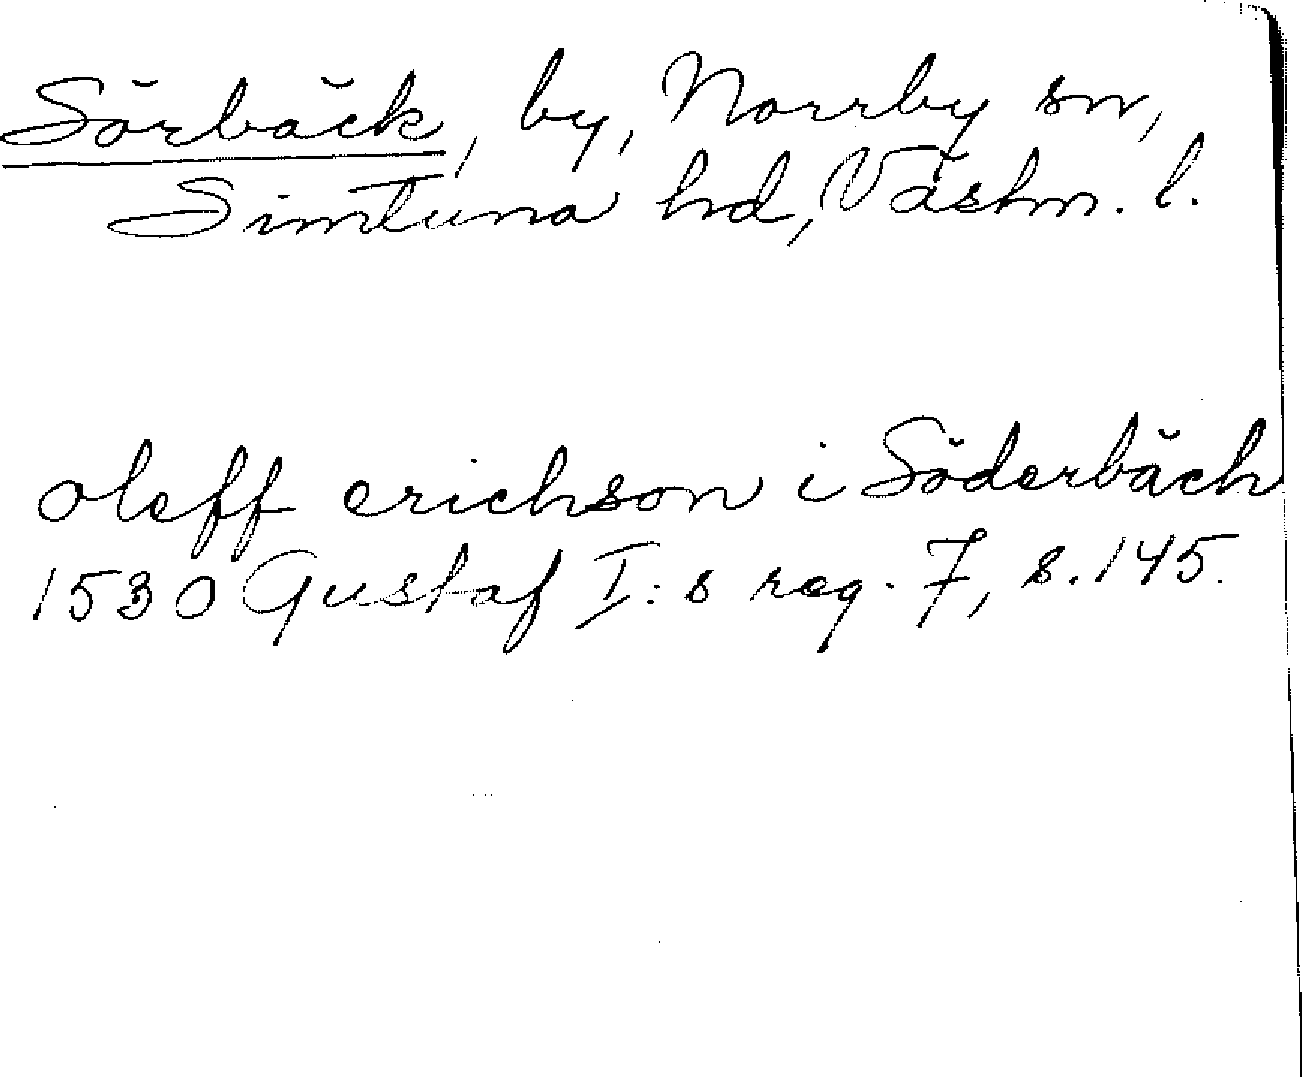 Sörbäck, by, Norrby sn,
Simtuna hd, Västm. l.
oleff erichson i Söderbäch
1530 Gustaf I:s reg. 7, s. 145.